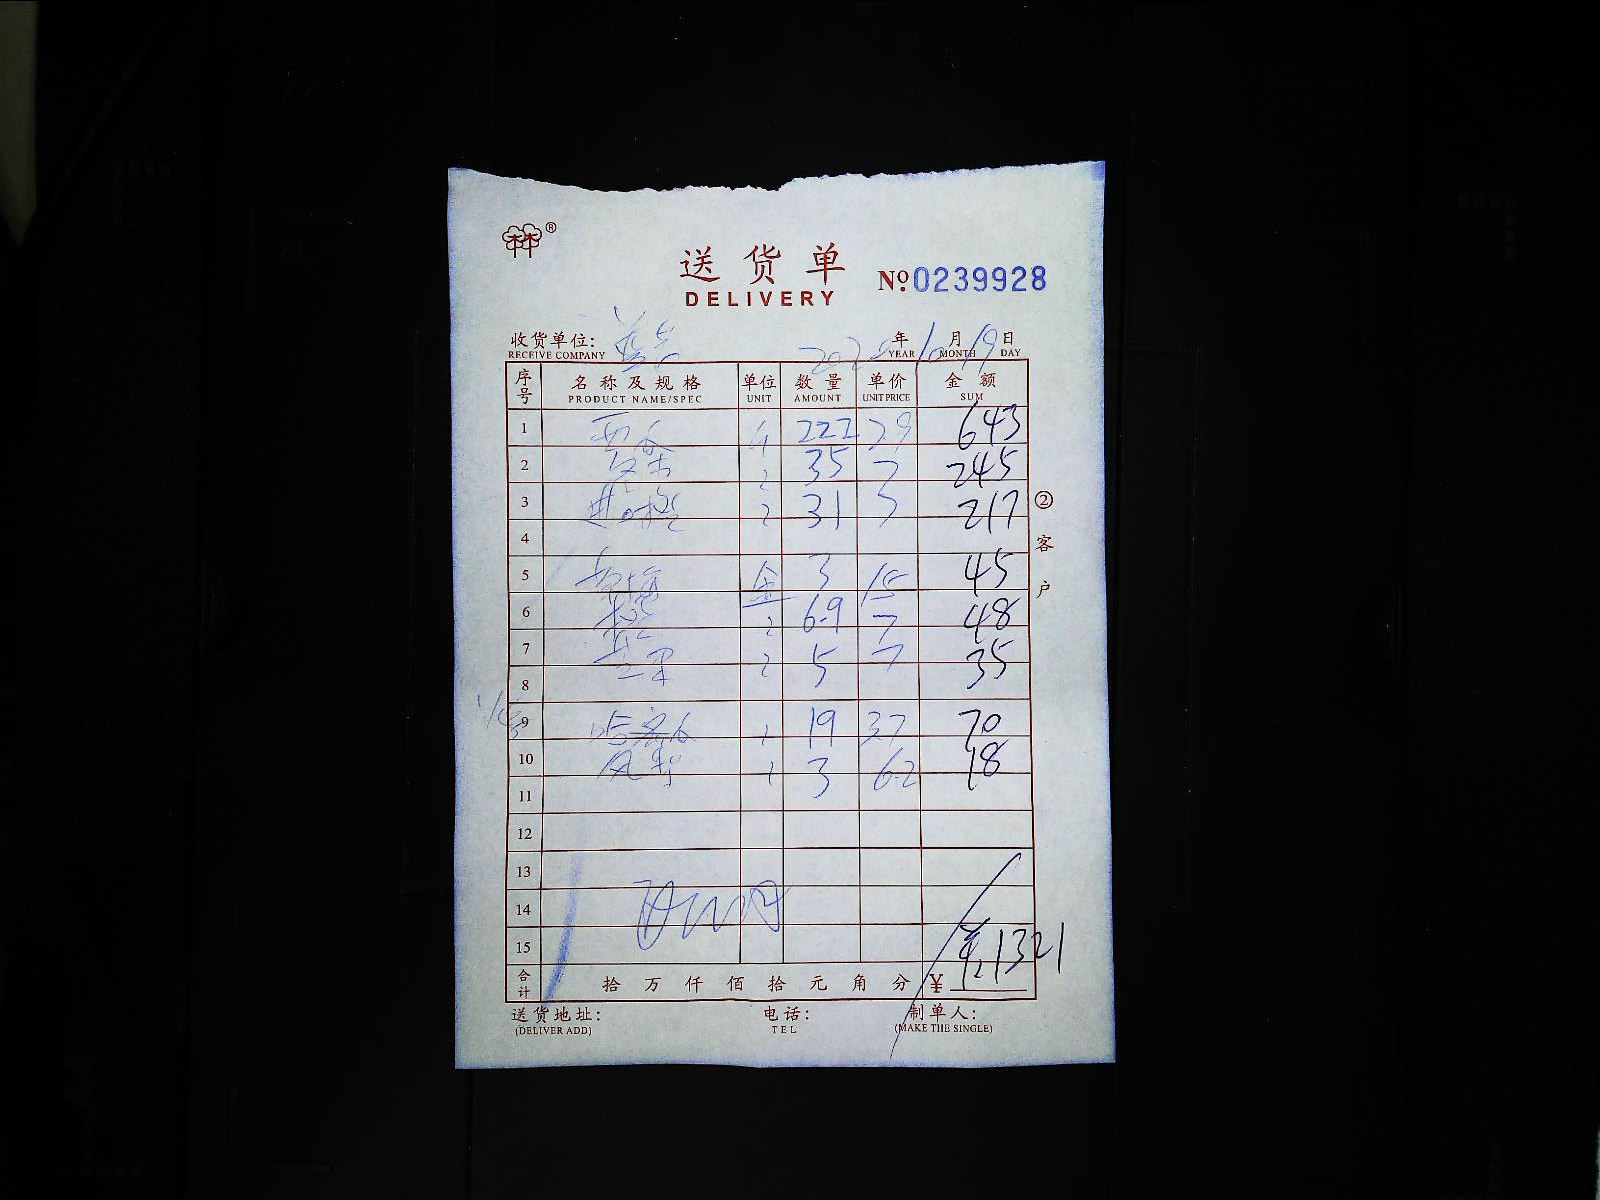 ®
送货单
DELIVERY
№ 0239928
收货单位:
RECEIVE COMPANY
年 10月19日
YEAR MONTH DAY
序号 名称及规格 单位 数量 单价 金额
PRODUCT NAME/SPEC UNIT AMOUNT UNIT PRICE SUM
1 西瓜 斤 222 2.9 643
2 35 7 245
3 31 7 217
4
5 3 15 45
6 6.9 7 48
7 5 7 35
8
9 哈密瓜 19 3.7 70
10 风梨 3 6.2 18
11
12
13
14
15
1321
合计 拾 万 仟 佰 拾 元 角 分 ¥
② 客户
送货地址: 电话: 制单人:
(DELIVER ADD) TEL (MAKE THE SINGLE)